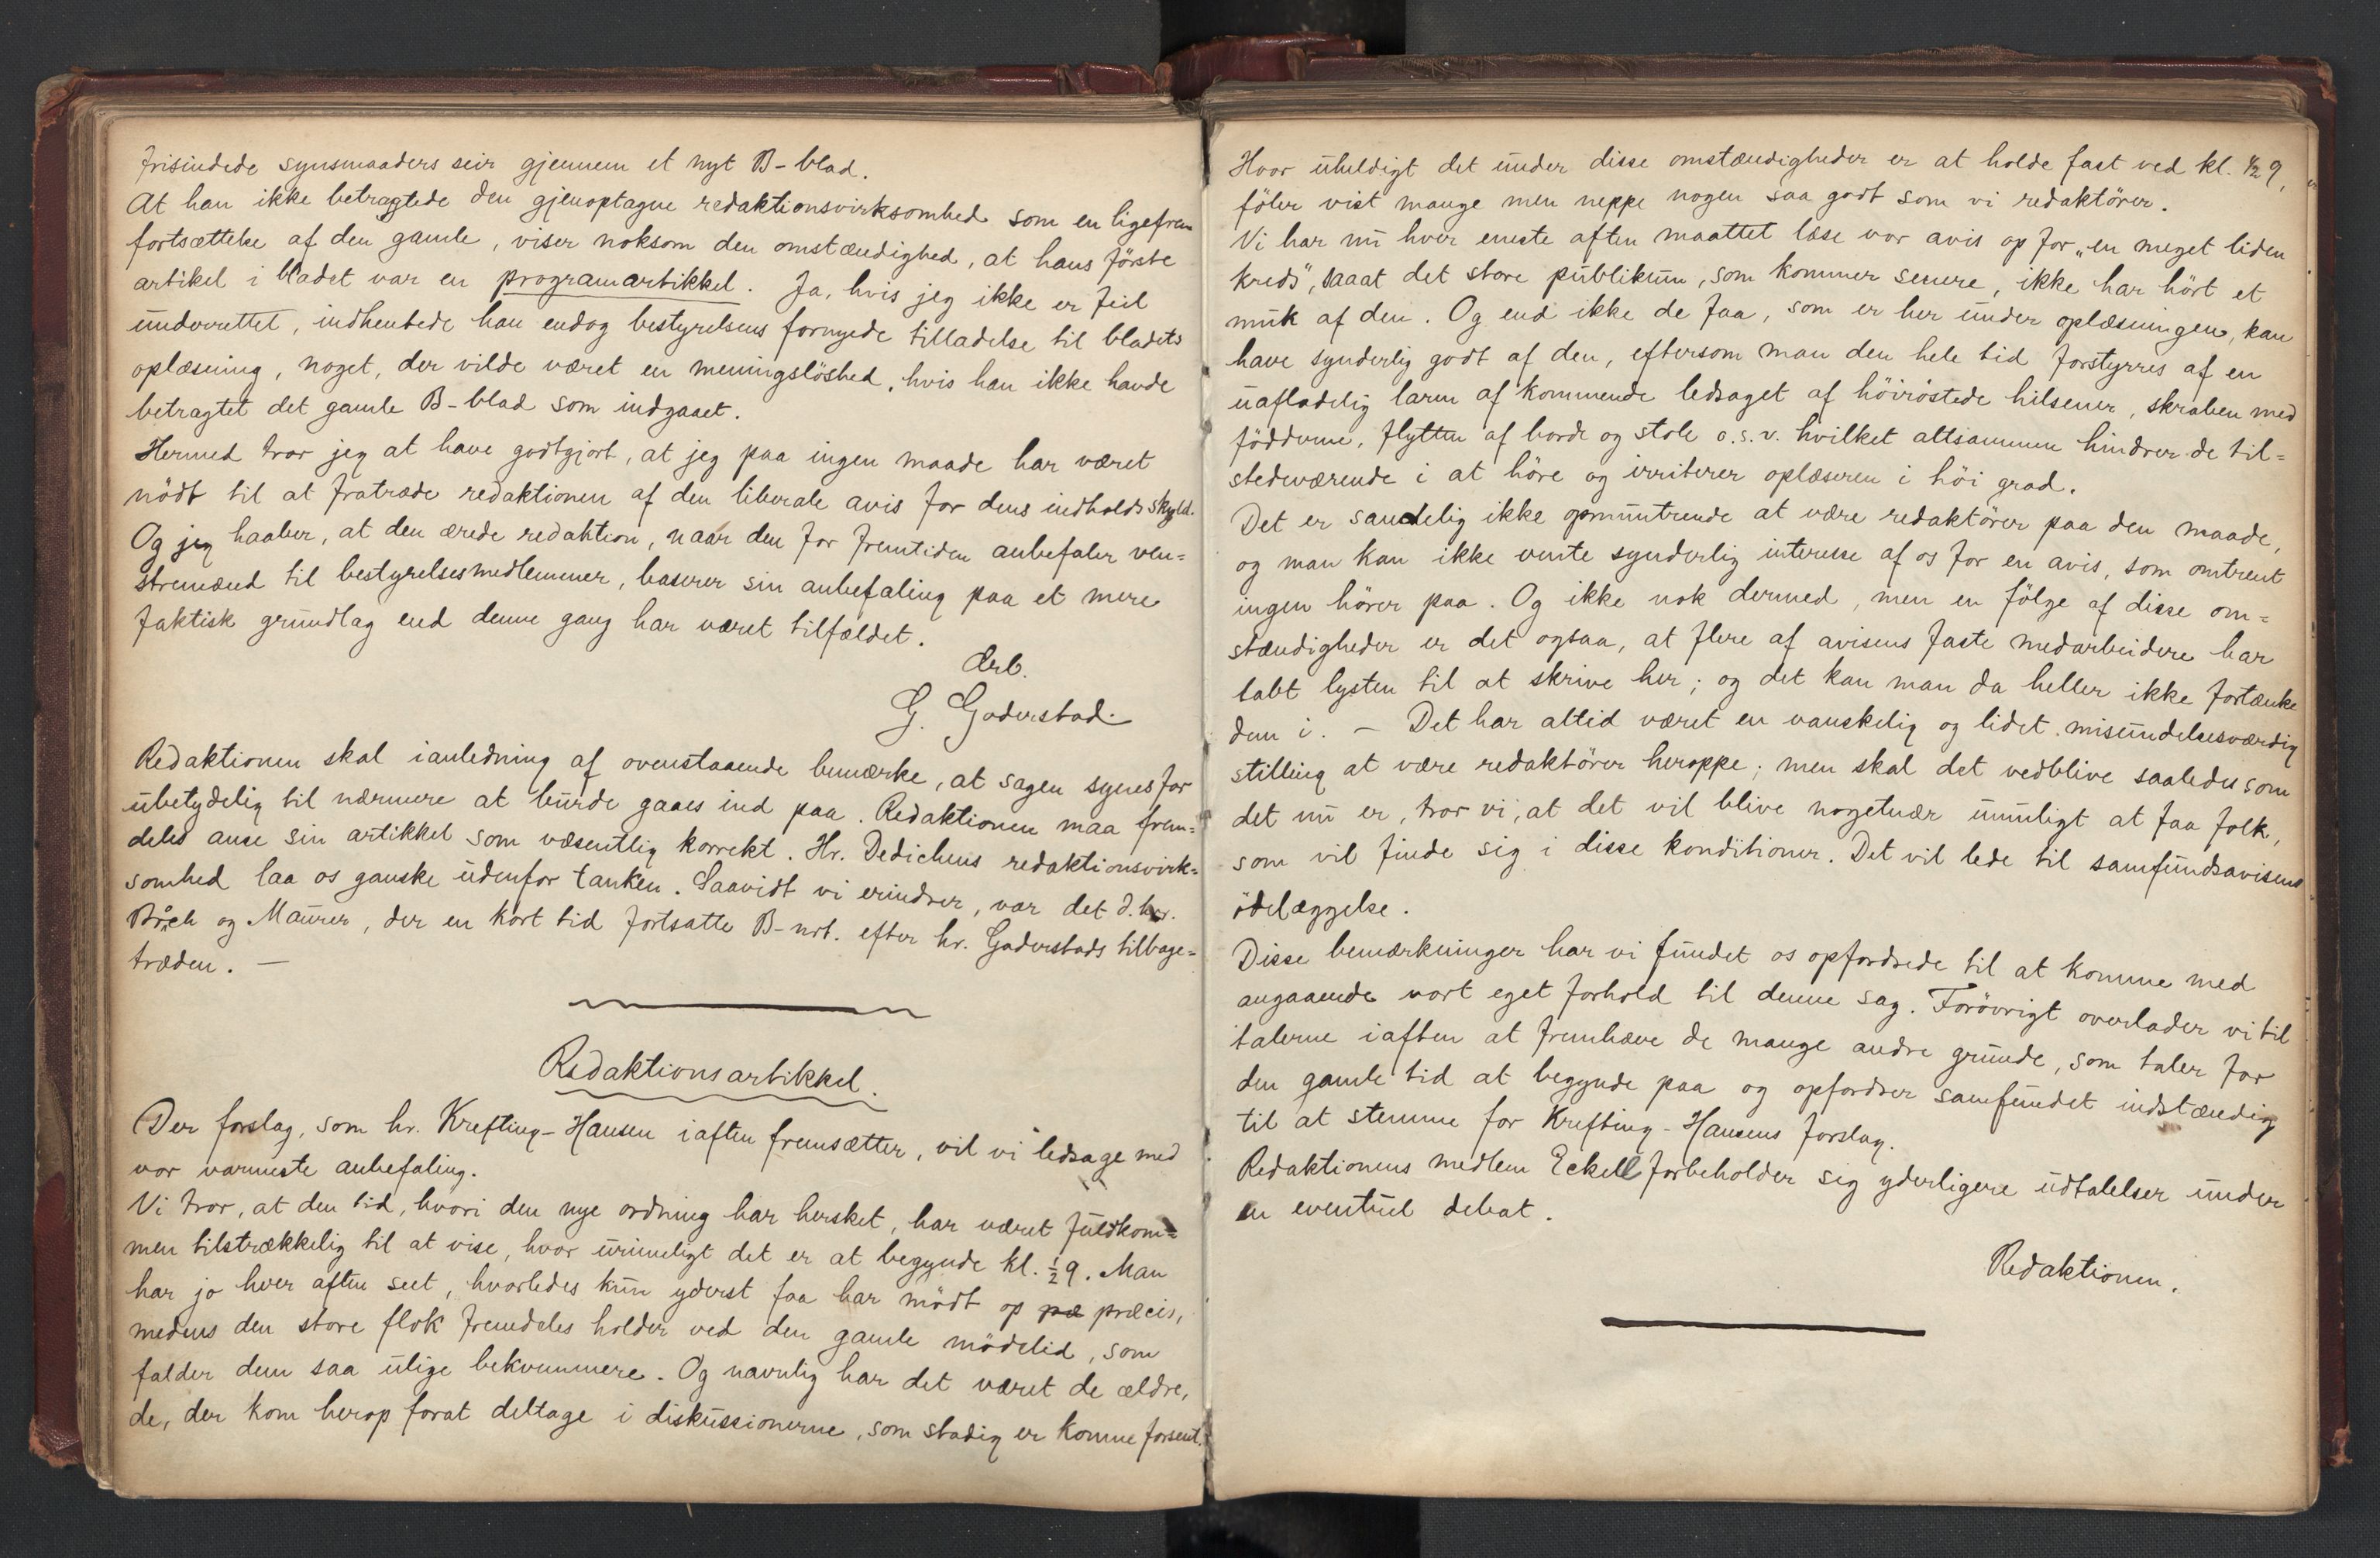 frisindede synsmaaders seir gjennem et nyt B-blad.
At han ikke betragtede den gjenoptagne redaktionsvirksomhed som en ligefrem
fortsættelse af den gamle, viser noksom den omstændighed, at hans förste
artikel i bladet var en programartikkel. Ja, hvis jeg ikke er feil
underrettet, indhentede han endog bestyrelsens fornyede tilladelse til bladets
oplæsning, noget, der vilde været en meningslöshed, hvis han ikke havde
betragtet det gamle B-blad som indgaaet.
Hermed tror jeg at have godtgjort, at jeg paa ingen maade har været
nödt til at fratræde redaktionen af den liberale avis for dens indholds skyld.
Og jeg haaber, at den ærede redaktion, naar den for fremtiden anbefaler ven=
stremænd til bestyrelsesmedlemmer, baserer sin anbefaling paa et mere
faktisk grundlag end denne gang har været tilfældet.
Ærb.
G. Gaderstad.
Redaktionen skal ianledning af ovenstaaende bemærke, at sagen synes for
ubetydelig til nærmere at burde gaaes ind paa. Redaktionen maa frem=
deles anse sin artikkel som væsentlig korrekt. Hr. Dedichens redaktionsvirk=
somhed laa os ganske udenfor tanken. Saavidt vi erindrer, var det d. hrr.
og Maurer, der en kort tid fortsatte B-nrt. efter hr. Gaderstads tilbage=
træden. —
Redaktionsartikkel.
Der forslag, som hr. Krefting-Hansen iaften fremsætter, vil vi ledsage med
vor varmeste anbefaling.
Vi tror, at den tid, hvori den nye ordning har hersket, har været fuldkom=
men tilstrækkelig til at vise, hvor urimeligt det er at begynde kl. ½ 9. Man
har jo hver aften seet, hvorledes kun yderst faa har mödt op pæ præcis,
medens den store flok fremdeles holder ved den gamle mödetid, som
falder dem saa ulige bekvemmere. Og navnlig har det været de ældre,
de, der kom herop forat deltage i diskussionerne, som stadig er komne forsent.
Hvor uheldigt det under disse omstændigheder er at holde fast ved kl. ½ 9,
föler vist mange men neppe nogen saa godt som vi redaktörer.
Vi har nu hver eneste aften maattet læse vor avis op for „en meget liden
kreds", saaat det store publikum, som kommer senere, ikke har hört et
muk af den. Og end ikke de faa, som er her under oplæsningen, kan
have synderlig godt af den, eftersom man den hele tid forstyrres af en
uafladelig larm af kommende ledsaget af höiröstede hilsener, skraben med
födderne, flytten af borde og stole o.s.v. hvilket altsammen hindrer de til=
stedeværende i at höre og irriterer oplæseren i höi grad.
Det er sandelig ikke opmuntrende at være redaktörer paa den maade,
og man kan ikke vente synderlig interesse af os for en avis, som omtrent
ingen hörer paa. Og ikke nok dermed, men en fölge af disse om=
stændigheder er det ogsaa, at flere af avisens faste medarbeidere har
tabt lysten til at skrive her; og det kan man da heller ikke fortænke
dem i. — Det har altid været en vanskelig og lidet misundelsesværdig
stilling at være redaktörer heroppe; men skal det vedblive saaledes som
det nu er, tror vi, at det vil blive nogetnær umuligt at faa folk,
som vil finde sig i disse konditioner. Det vil lede til samfundsavisens
ödelæggelse.
Disse bemærkninger har vi fundet os opfordrede til at komme med
angaaende vort eget forhold til denne sag. Forövrigt overlader vi til
talerne iaften at fremhæve de mange andre grunde, som taler for
den gamle tid at begynde paa og opfordrer samfundet indstændig
til at stemme for Krefting-Hansens forslag.
Redaktionens medlem Eckell forbeholder sig yderligere udtalelser under
en eventuel debat.
Redaktionen.